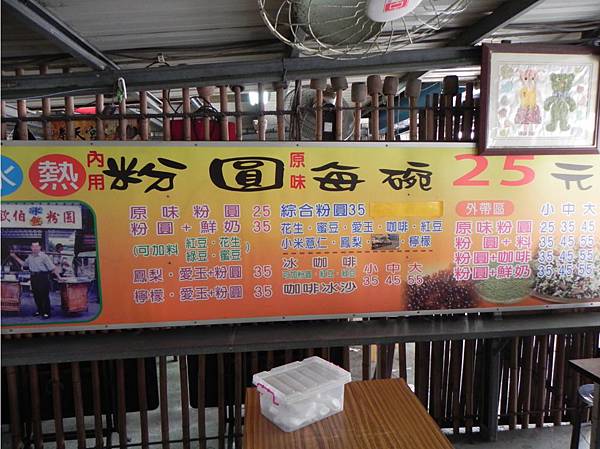 冰 熱 內用 粉圓 原味 每碗 25元
歐伯粉圓
原味粉圓 25
粉圓+鮮奶 35
(可加料 紅豆·花生
綠豆·蜜豆)
鳳梨·愛玉+粉圓 35
檸檬·愛玉+粉圓 35
綜合粉圓35
花生·蜜豆·愛玉·咖啡·紅豆
小米薏仁·鳳梨· 檸檬
冰咖啡
咖啡冰沙
小 中 大
35 45 55
外帶區 小 中 大
原味粉圓 25 35 45
粉圓+料 35 45 55
粉圓+咖啡 35 45 55
粉圓+鮮奶 35 45 55